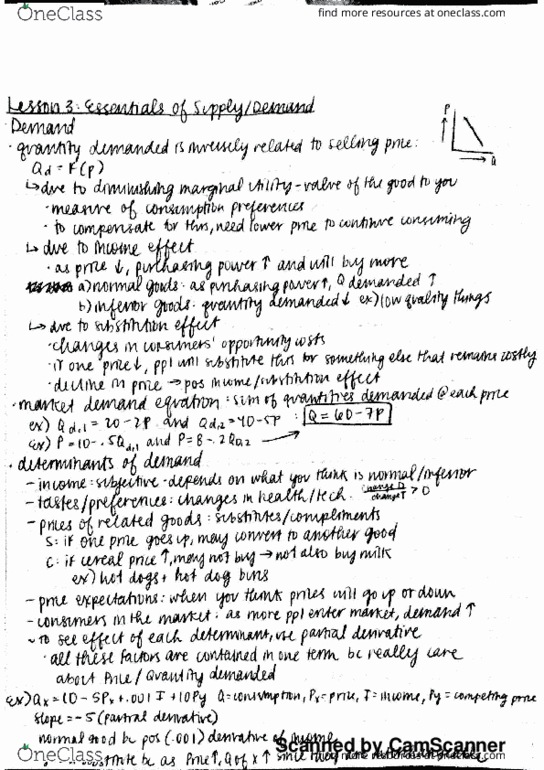 OneClass
find more resources at oneclass.com
Lesson 3: Essentials of Supply/Demand
P
Q
Demand
· quantity demanded is inversely related to selling price:
Qd = F(p)
↳ due to diminishing marginal utility - value of the good to you
· measure of consumption preferences
· to compensate for this, need lower price to continue consuming
↳ due to income effect
· as price ↓, purchasing power ↑ and will buy more
a) normal goods: as purchasing power ↑, Q demanded ↑
b) inferior goods: quantity demanded ↓ ex) low quality things
↳ due to substitution effect
· changes in consumers' opportunity costs
· if one price ↓, ppl will substitute this for something else that remains costly
· decline in price → pos income/substitution effect
· market demand equation: sum of quantities demanded @ each price
ex) Qd,1 = 20 - 2P and Qd,2 = 40 - 5P : Q = 60 - 7P
ex) P = 10 - .5Qd,1 and P = 8 - .2Qd,2
· determinants of demand
- income: subjective - depends on what you think is normal/inferior
- tastes/preferences: changes in health/tech. change D / change I > 0
- prices of related goods: substitutes/compliments
S: if one price goes up, may convert to another good
C: if cereal price ↑, may not buy → not also buy milk
ex) hot dogs + hot dog buns
- price expectations: when you think prices will go up or down
- consumers in the market: as more ppl enter market, demand ↑
~ to see effect of each determinant, use partial derivative
· all these factors are contained in one term bc really care
about Price/Quantity demanded
ex) Qx = 10 - 5Px + .001 I + 10Py Q = consumption, Px = price, I = income, Py = competing price
slope = -5 (partial derivative)
normal good bc pos (.001) derivative of income
Scanned by CamScanner
bc as Price ↑, Q of x ↑ since they
OneClass
find more resources at oneclass.com